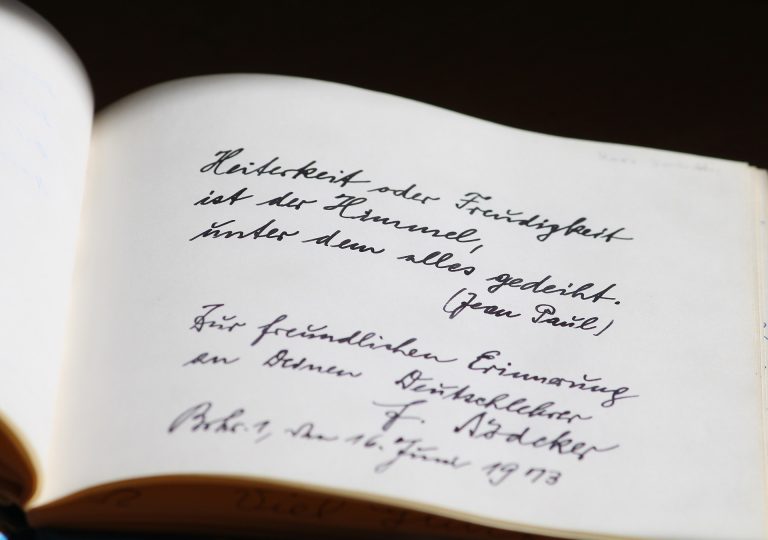 Heiterkeit oder Freudigkeit
ist der Himmel,
unter dem alles gedeiht.
(Jean Paul)
Zur freundlichen Erinnerung
an Deinen Deutschlehrer
F. Rödeker
den 16. Juni 1973
Viel